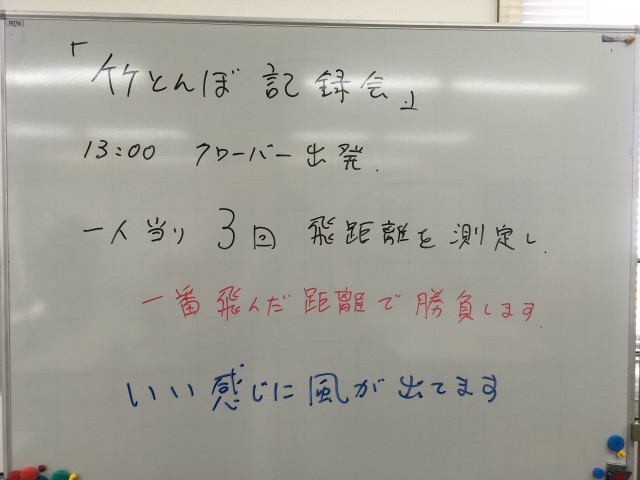 「竹とんぼ 記録会」
13:00 クローバー出発.
一人当り 3回 飛距離を測定し.
一番飛んだ距離で勝負します.
いい感じに風が出てます